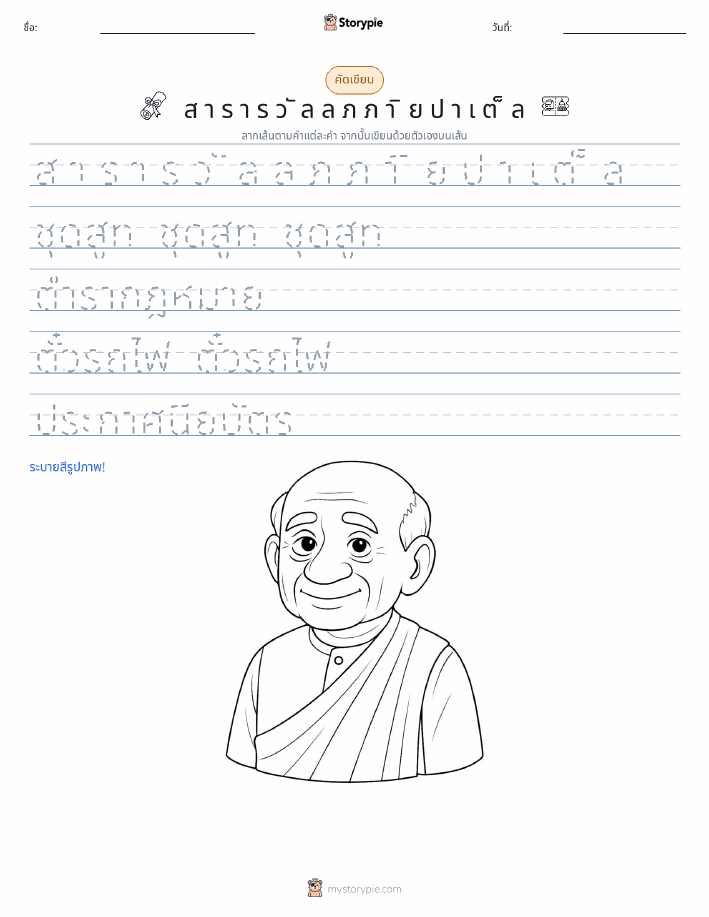 ชื่อ:
Storypie
วันที่:
คัดเขียน
ส า ร า ร ว ั ล ล ภ ภ า ิ ย ป า เ ต ็ ล
ลากเส้นตามคำแต่ละคำ จากนั้นเขียนด้วยตัวเองบนเส้น
ส า ร า ร ว ั ล ล ภ ภ า ิ ย ป า เ ต ็ ล
ชุดสูท ชุดสูท ชุดสูท
ตำรากฎหมาย
ตั๋วรถไฟ ตั๋วรถไฟ
ประกาศนียบัตร
ระบายสีรูปภาพ!
mystorypie.com